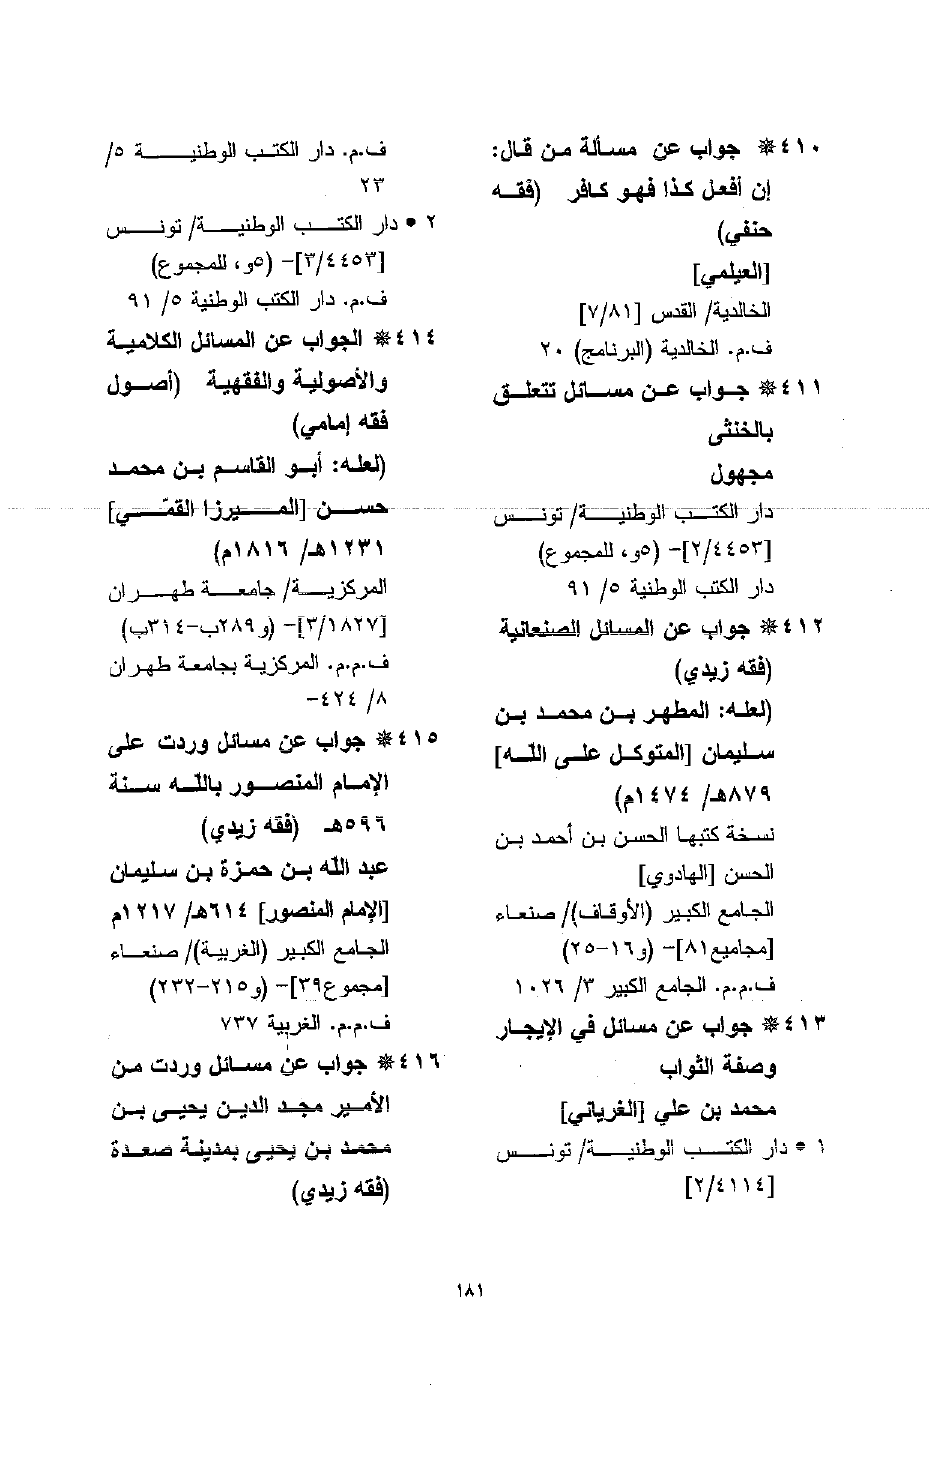 ٤١٠ ❋ جواب عن مسألة من قال:
إن أفعل كذا فهو كافر (فقه
حنفي)
[العيلمي]
الخالدية/ القدس [٧/٨١]
ف.م. الخالدية (البرنامج) ٢٠
٤١١ ❋ جواب عن مسائل تتعلق
بالخنثى
مجهول
دار الكتب الوطنية/ تونس
[٢/٤٤٥٣]– (٥و، للمجموع)
دار الكتب الوطنية ٥/ ٩١
٤١٢ ❋ جواب عن المسائل الصنعانية
(فقه زيدي)
(لعله: المطهر بن محمد بن
سليمان [المتوكل على الله]
٨٧٩هـ/ ١٤٧٤م)
نسخة كتبها الحسن بن أحمد بن
الحسن [الهادوي]
الجامع الكبير (الأوقاف)/ صنعاء
[مجاميع٨١]– (و١٦–٢٥)
ف.م.م. الجامع الكبير ٣/ ١٠٢٦
٤١٣ ❋ جواب عن مسائل في الإيجار
وصفة الثواب
محمد بن علي [الغرياني]
١ • دار الكتب الوطنية/ تونس
[٢/٤١١٤]
ف.م. دار الكتب الوطنية ٥/
٢٣
٢ • دار الكتب الوطنية/ تونس
[٣/٤٤٥٣]– (٥و، للمجموع)
ف.م. دار الكتب الوطنية ٥/ ٩١
٤١٤ ❋ الجواب عن المسائل الكلامية
والأصولية والفقهية (أصول
فقه إمامي)
(لعله: أبو القاسم بن محمد
حسن [الميرزا القمّي]
١٢٣١هـ/ ١٨١٦م)
المركزية/ جامعة طهران
[٣/١٨٢٧]– (و٢٨٩ب–٣١٤ب)
ف.م.م. المركزية بجامعة طهران
٨/ ٤٢٤–
٤١٥ ❋ جواب عن مسائل وردت على
الإمام المنصور بالله سنة
٥٩٦هـ (فقه زيدي)
عبد الله بن حمزة بن سليمان
[الإمام المنصور] ٦١٤هـ/ ١٢١٧م
الجامع الكبير (الغربية)/ صنعاء
[مجموع٣٩]– (و٢١٥–٢٣٢)
ف.م.م. الغربية ٧٣٧
٤١٦ ❋ جواب عن مسائل وردت من
الأمير مجد الدين يحيى بن
محمد بن يحيى بمدينة صعدة
(فقه زيدي)
١٨١